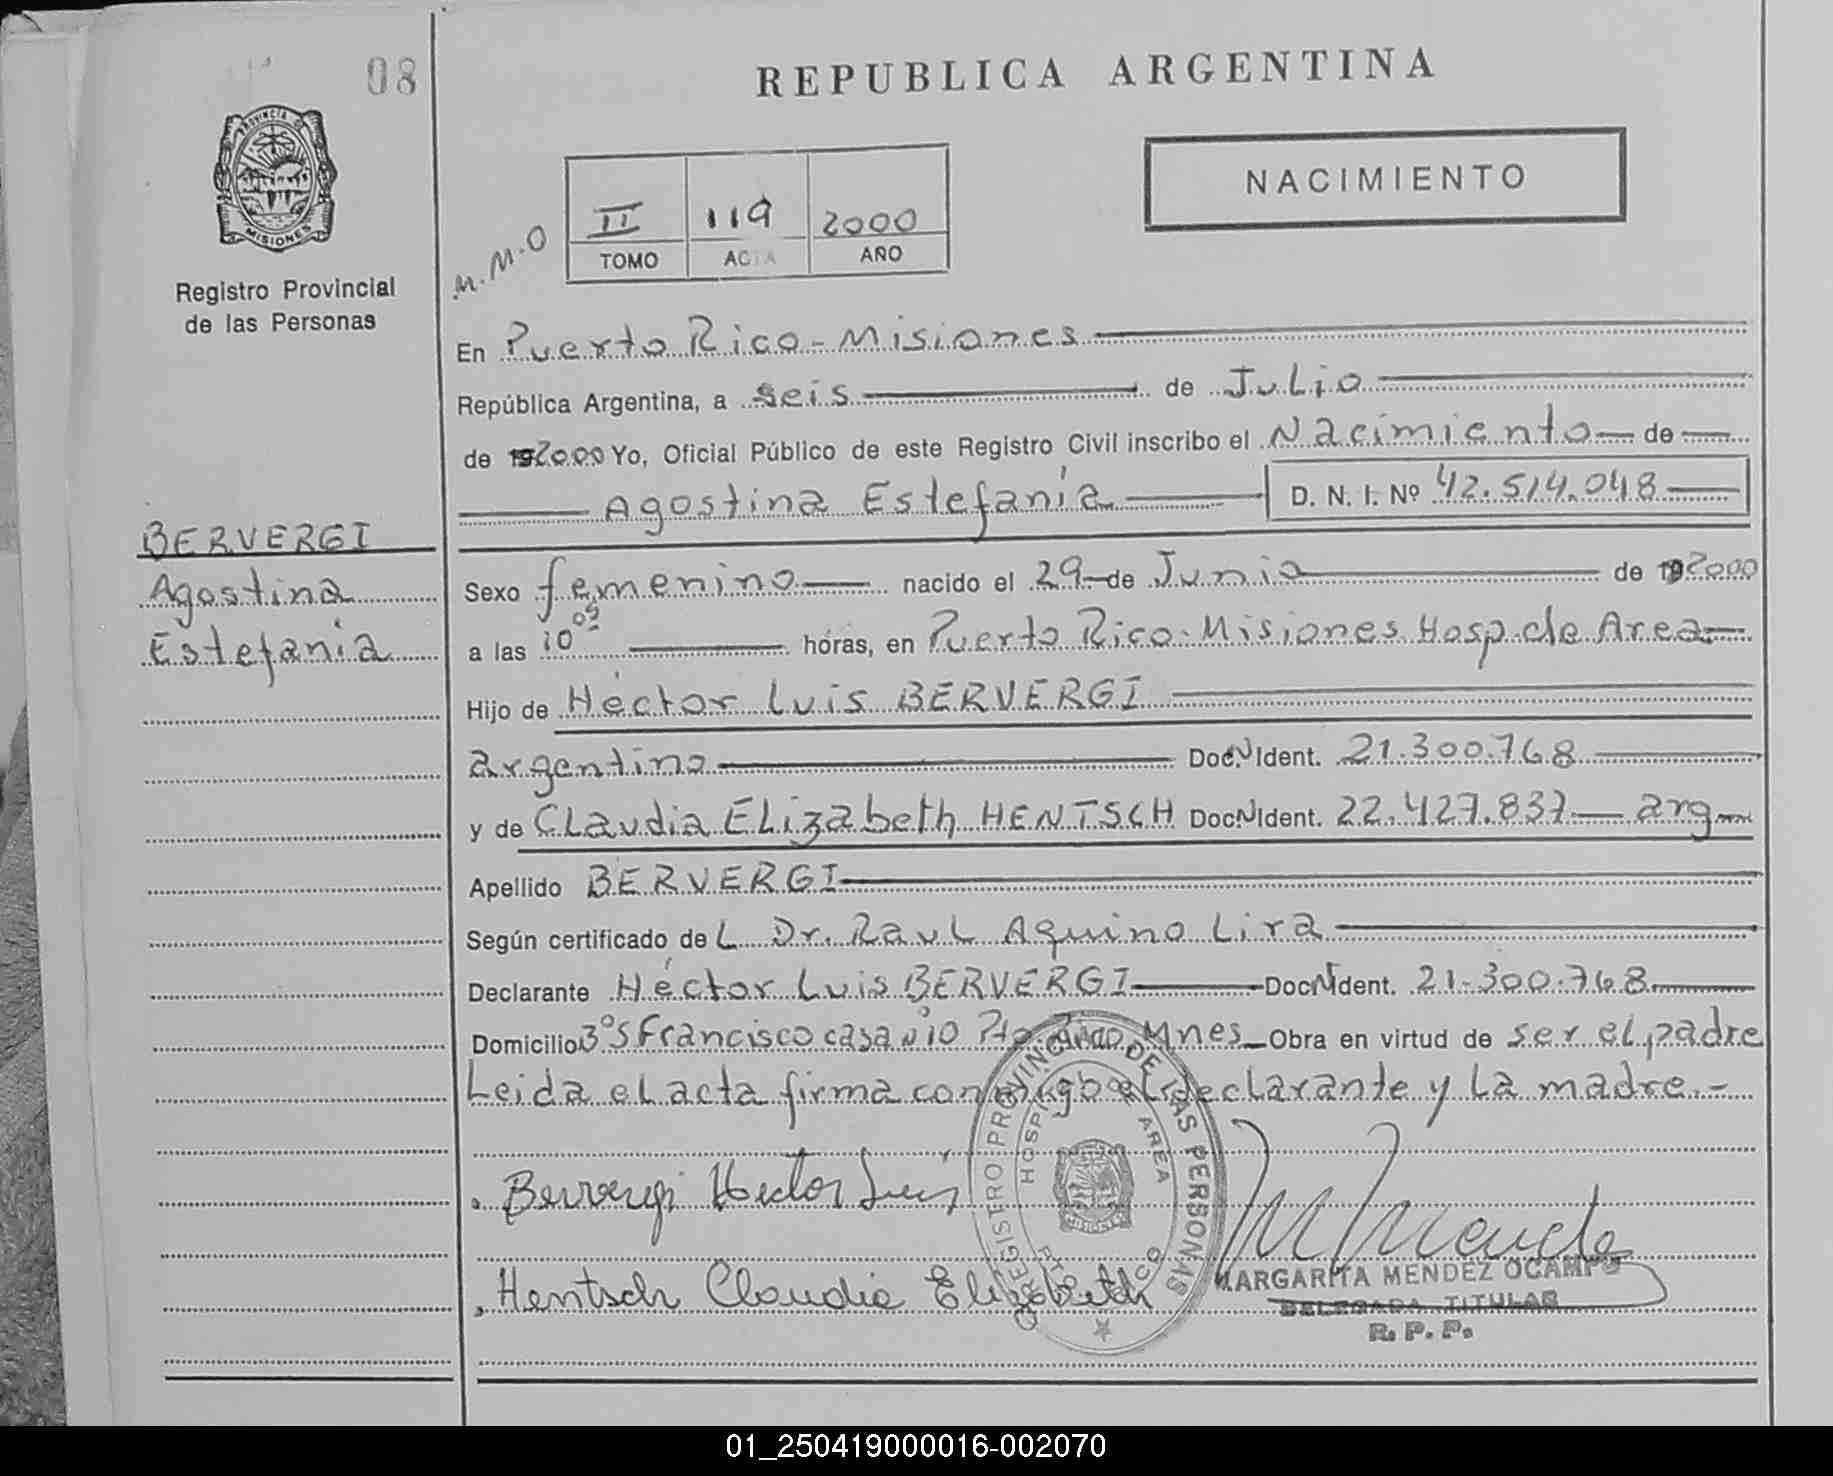 08
REPUBLICA ARGENTINA
PROVINCIA DE
MISIONES
Registro Provincial
de las Personas
M.M.O
II 119 2000
TOMO ACTA AÑO
NACIMIENTO
En Puerto Rico - Misiones
República Argentina, a seis de Julio
de 192000 Yo, Oficial Público de este Registro Civil inscribo el Nacimiento de
Agostina Estefanía D. N. I. Nº 42.514.048
BERVERGI
Agostina
Estefania
Sexo femenino nacido el 29 de Junio de 192000
a las 10 05 horas, en Puerto Rico - Misiones Hosp. de Area
Hijo de Héctor Luis BERVERGI
argentino Doc.N Ident. 21.300.768
y de Claudia Elizabeth HENTSCH Doc.N Ident. 22.427.837 arg
Apellido BERVERGI
Según certificado de L Dr. Raul Aquino Lira
Declarante Héctor Luis BERVERGI Doc N Ident. 21.300.768
Domicilio Bº S Francisco casa Nº 10 Pto Rico Mnes Obra en virtud de ser el padre
Leida el acta firma conmigo el declarante y la madre.-
REGISTRO PROVINCIAL DE LAS PERSONAS
HOSPITAL DE AREA
PTO RICO
Bervergi Hector Luis
Hentsch Claudia Elizabeth
M Mende
MARGARITA MENDEZ OCAMPO
DELEGADA TITULAR
R. P. P.
01_250419000016-002070